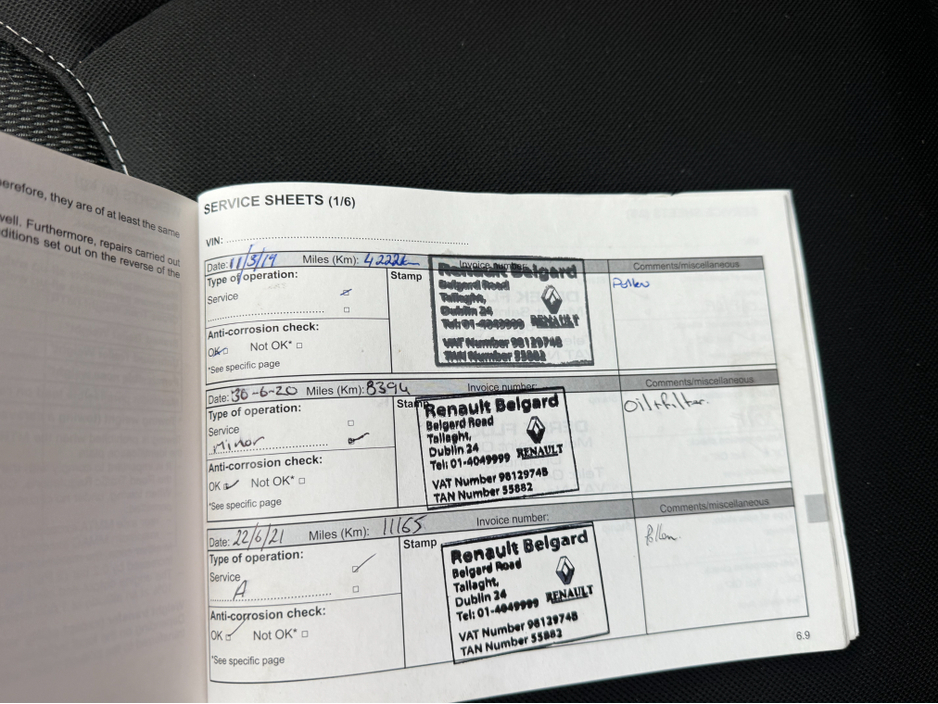 herefore, they are of at least the same
well. Furthermore, repairs carried out
ditions set out on the reverse of the
SERVICE SHEETS (1/6)
VIN:
Date: 11/3/19 Miles (Km): 4222k Invoice number: Comments/miscellaneous
Type of operation: Stamp
Service
Renault Belgard
Belgard Road
Tallaght,
Dublin 24
Tel: 01-4049999 RENAULT
VAT Number 9812974B
TAN Number 55882
Pollen
Anti-corrosion check:
OK Not OK*
*See specific page
Date: 30-6-20 Miles (Km): 8394 Invoice number: Comments/miscellaneous
Type of operation: Stamp
Service
Minor
Renault Belgard
Belgard Road
Tallaght,
Dublin 24
Tel: 01-4049999 RENAULT
VAT Number 9812974B
TAN Number 55882
Oil+filter.
Anti-corrosion check:
OK Not OK*
*See specific page
Date: 22/6/21 Miles (Km): 11165 Invoice number: Comments/miscellaneous
Type of operation: Stamp
Service
A
Renault Belgard
Belgard Road
Tallaght,
Dublin 24
Tel: 01-4049999 RENAULT
VAT Number 9812974B
TAN Number 55882
Pollen.
Anti-corrosion check:
OK Not OK*
*See specific page
6.9